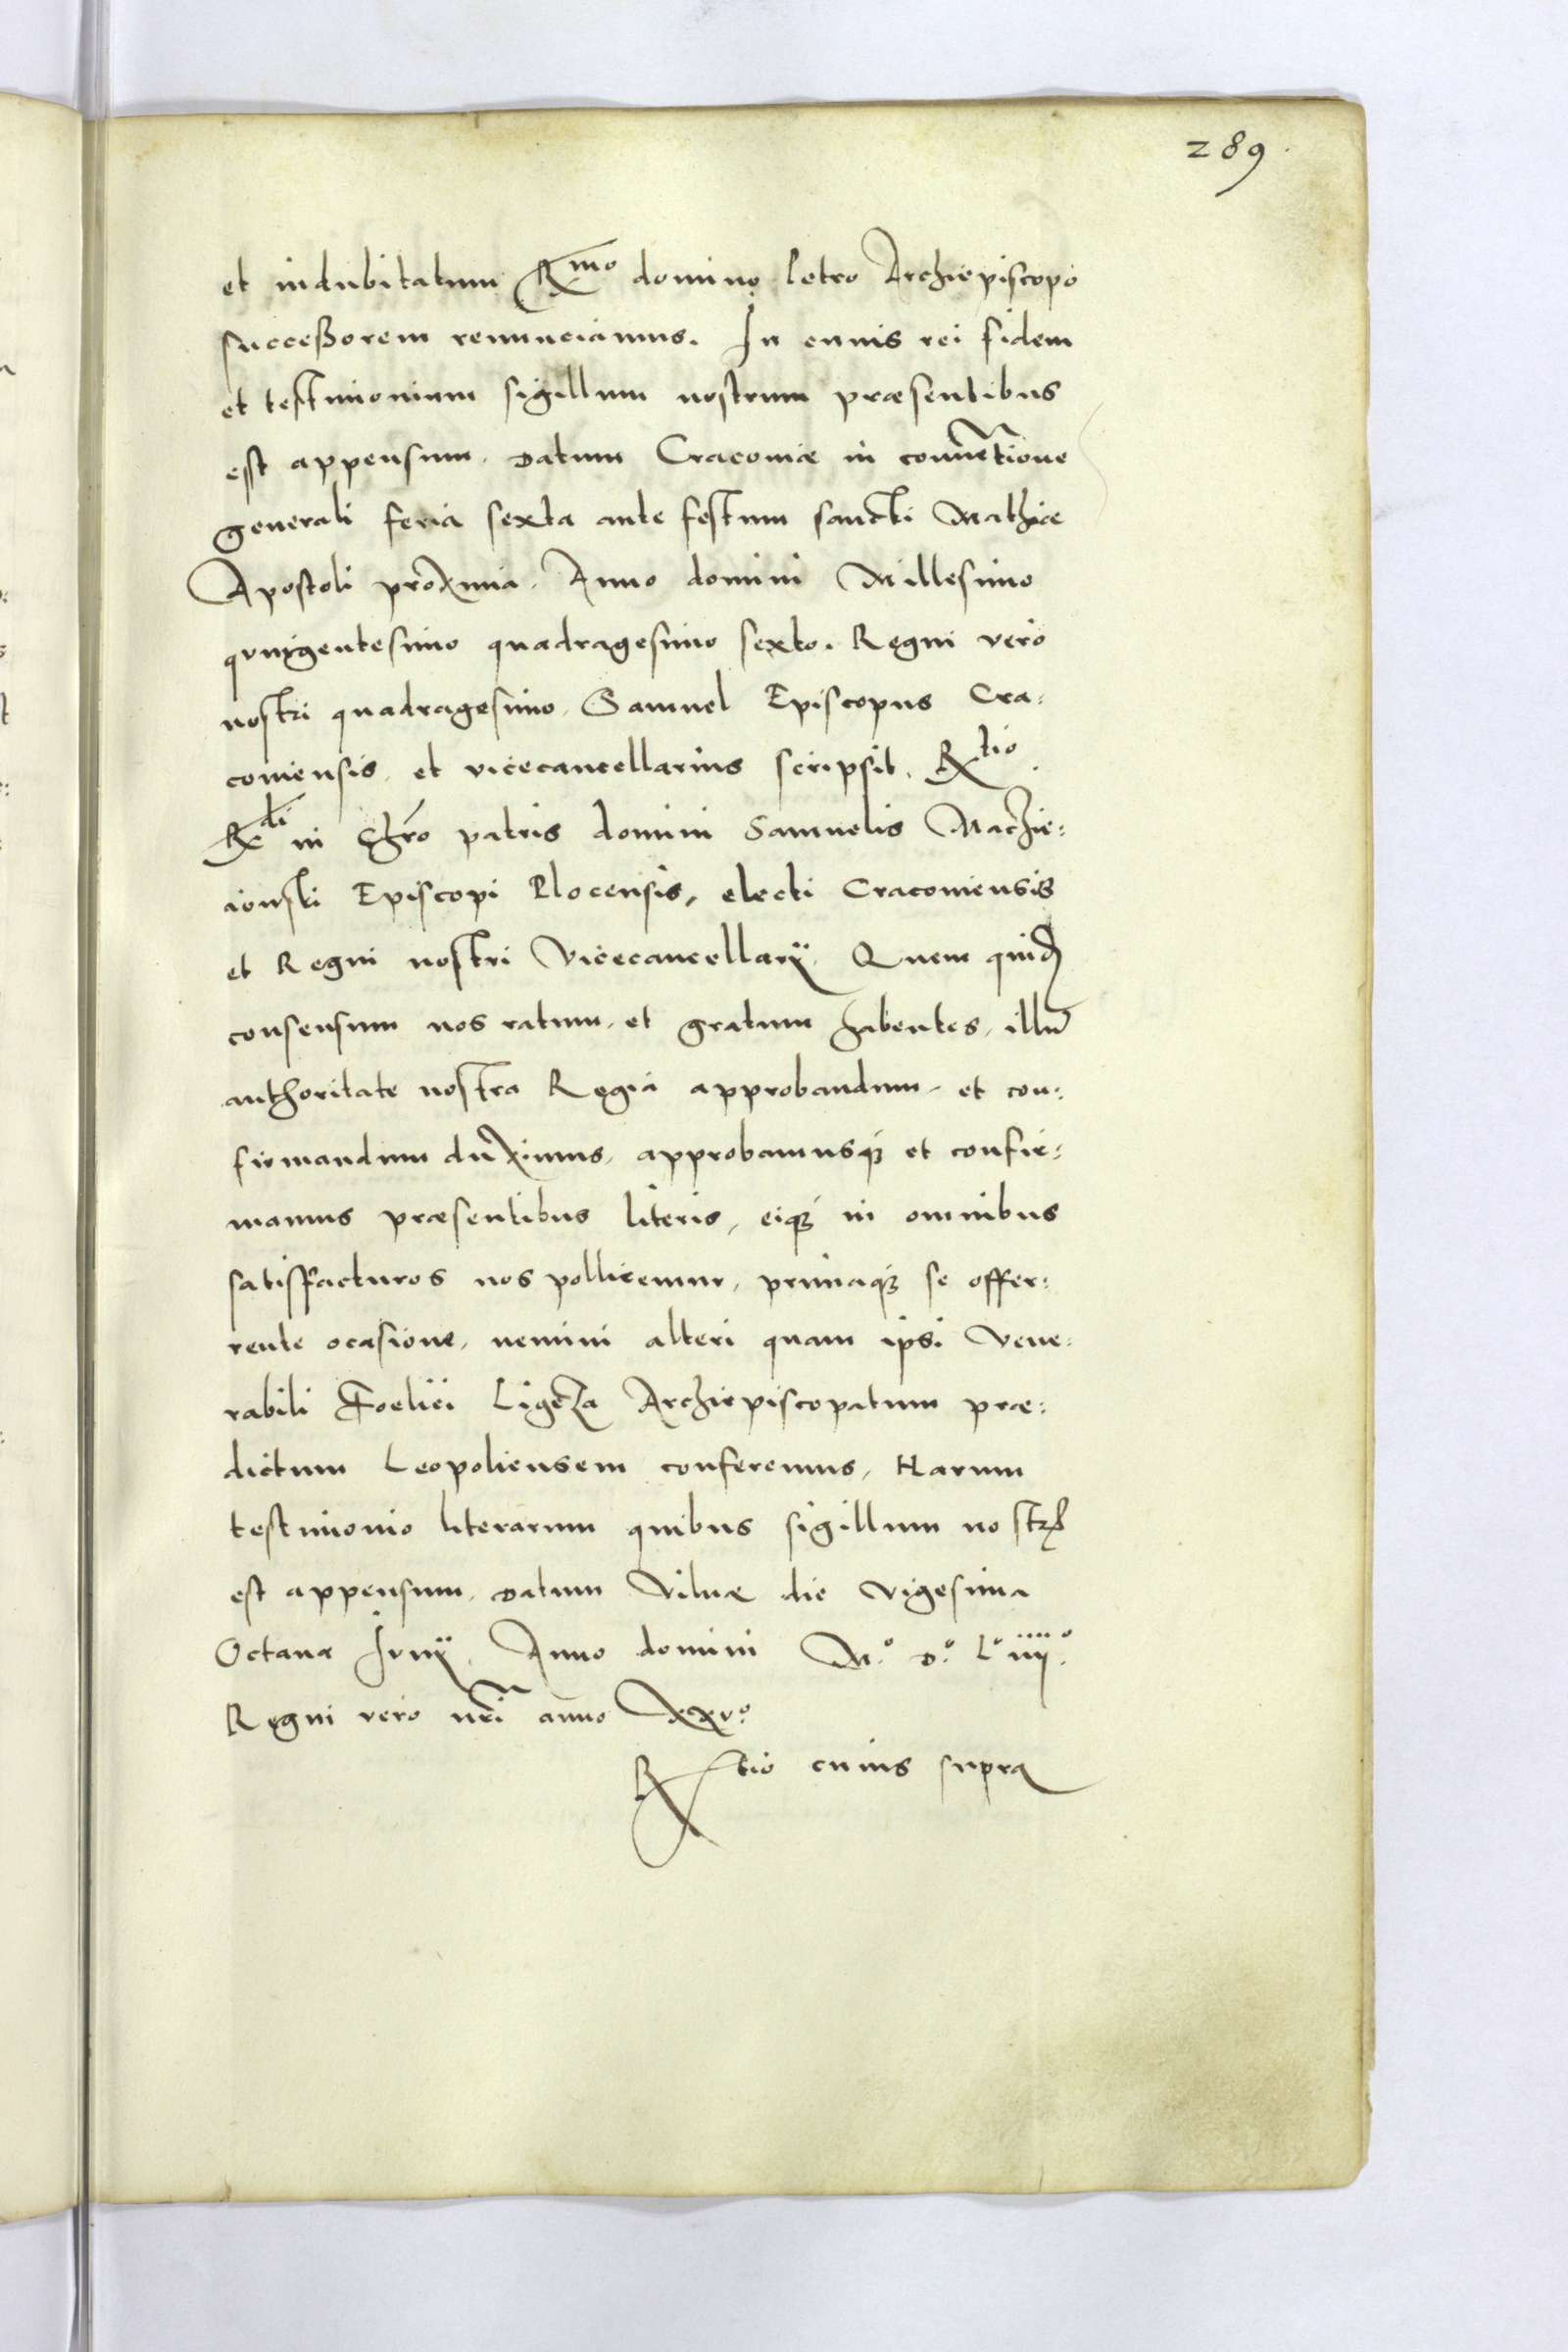 289
et indubitatum Rmo domino Petro Archiepiscopo
succeßorem renunciamus. In cuius rei fidem
et testimonium sigillum nostrum præsentibus
est appensum. Datum Cracoviæ in conuētione
generali feria sexta ante festum sancti Mathiæ
Apostoli proxima. Anno domini Millesimo
quingentesimo quadragesimo sexto. Regni vero
nostri quadragesimo. Samuel Episcopus Cra:
couiensis et vicecancellarius scripsit. Rtio.
Rdi in Chro patris domini Samuelis Machie:
iouski Episcopi Plocensis, electi Cracouiensis
et Regni nostri Vicecancellarij. Quem quidē
consensum nos ratum et gratum habentes, illū
authoritate nostra Regia approbandum et con:
firmandum duximus, approbamusq; et confir:
mamus præsentibus literis, eiq; in omnibus
satisfacturos nos pollicemur, primaq; se offer:
rente ocasione, nemini alteri quam ipsi Vene:
rabili Foelici Ligęza Archiepiscopatum præ:
dictum Leopoliensem conferemus, Harum
testimonio literarum quibus sigillum nostrū
est appensum. Datum Vilnæ die vigesima
Octaua Junij. Anno domini M.° D.° L° iiij.°
Regni vero nr̄i anno xxv.°
Rtio cuius supra